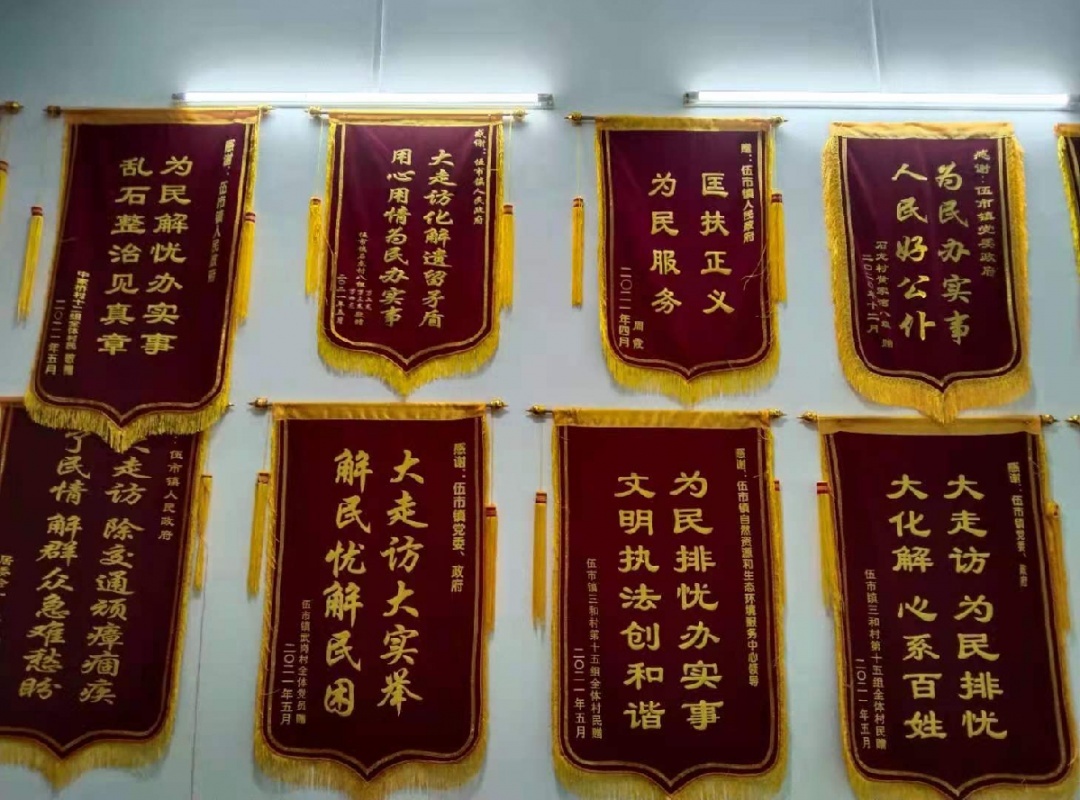 感谢：伍市镇人民政府
为民解忧办实事
乱石整治见真章
二〇二一年五月
感谢：伍市镇人民政府
大走访化解遗留矛盾
用心用情为民办实事
二〇二一年五月
赠：伍市镇人民政府
匡扶正义
为民服务
二〇二一年四月
感谢：伍市镇党委政府
为民办实事
人民好公仆
伍市镇人民政府
走访 除交通顽瘴痼疾
了民情 解群众急难愁盼
感谢：伍市镇党委、政府
大走访大实举
解民忧解民困
二〇二一年五月
感谢：伍市镇自然资源和生态环境服务中心领导
为民排忧办实事
文明执法创和谐
伍市镇三和村第十五组全体村民赠
二〇二一年五月
感谢：伍市镇党委、政府
大走访 为民排忧
大化解 心系百姓
伍市镇三和村第十五组全体村民赠
二〇二一年五月